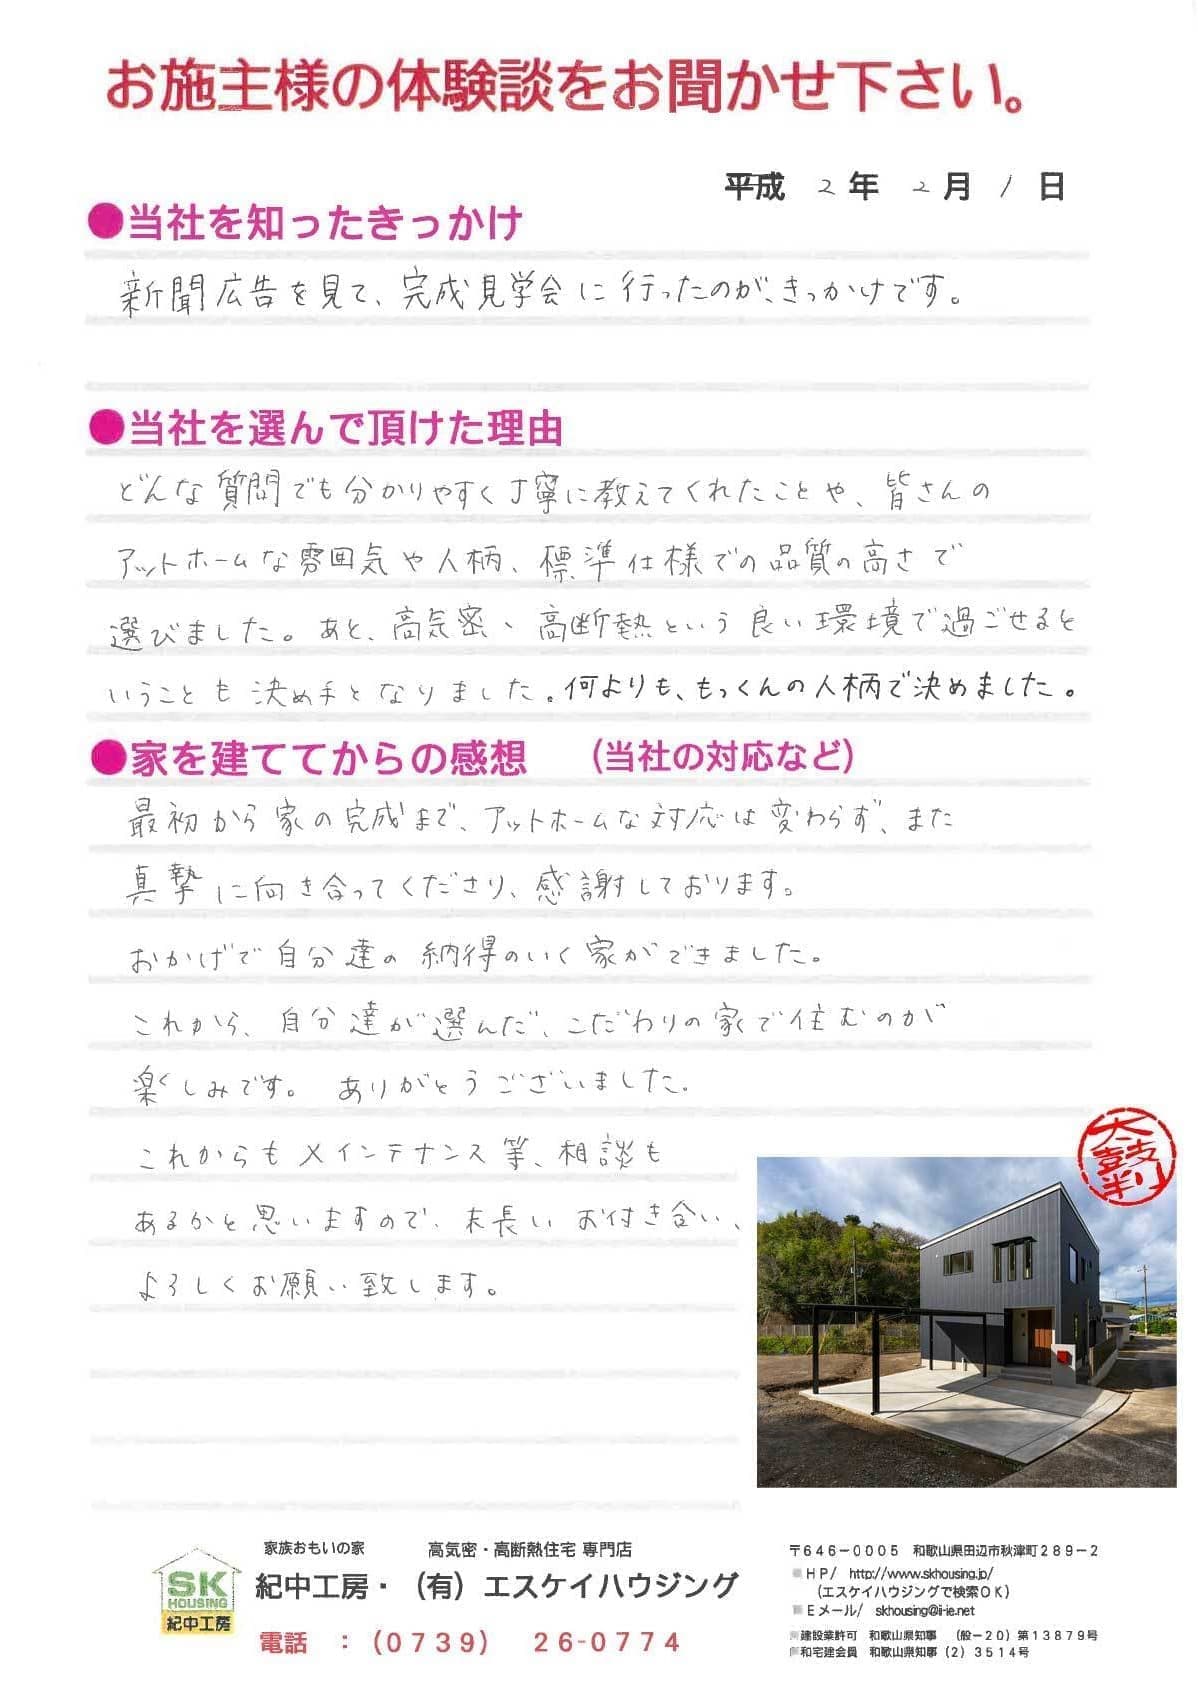 お施主様の体験談をお聞かせ下さい。
平成 2 年 2 月 1 日
●当社を知ったきっかけ
新聞広告を見て、完成見学会に行ったのが、きっかけです。
●当社を選んで頂けた理由
どんな質問でも分かりやすく丁寧に教えてくれたことや、皆さんの
アットホームな雰囲気や人柄、標準仕様での品質の高さで
選びました。あと、高気密、高断熱という良い環境で過ごせると
いうことも決め手となりました。何よりも、もっくんの人柄で決めました。
●家を建ててからの感想 （当社の対応など）
最初から家の完成まで、アットホームな対応は変わらず、また
真摯に向き合ってくださり、感謝しております。
おかげで自分達の納得のいく家ができました。
これから、自分達が選んだ、こだわりの家で住むのが
楽しみです。 ありがとうございました。
これからもメインテナンス等、相談も
あるかと思いますので、末長いお付き合い、
よろしくお願い致します。
太鼓判
家族おもいの家 高気密・高断熱住宅 専門店
SK HOUSING 紀中工房
紀中工房・（有）エスケイハウジング
電話 ：（0739） 26-0774
〒646－0005 和歌山県田辺市秋津町289－2
■HP/ http://www.skhousing.jp/
（エスケイハウジングで検索OK）
■Eメール/ skhousing@ii-ie.net
建設業許可 和歌山県知事 （般－20）第13879号
和宅建会員 和歌山県知事（2）3514号